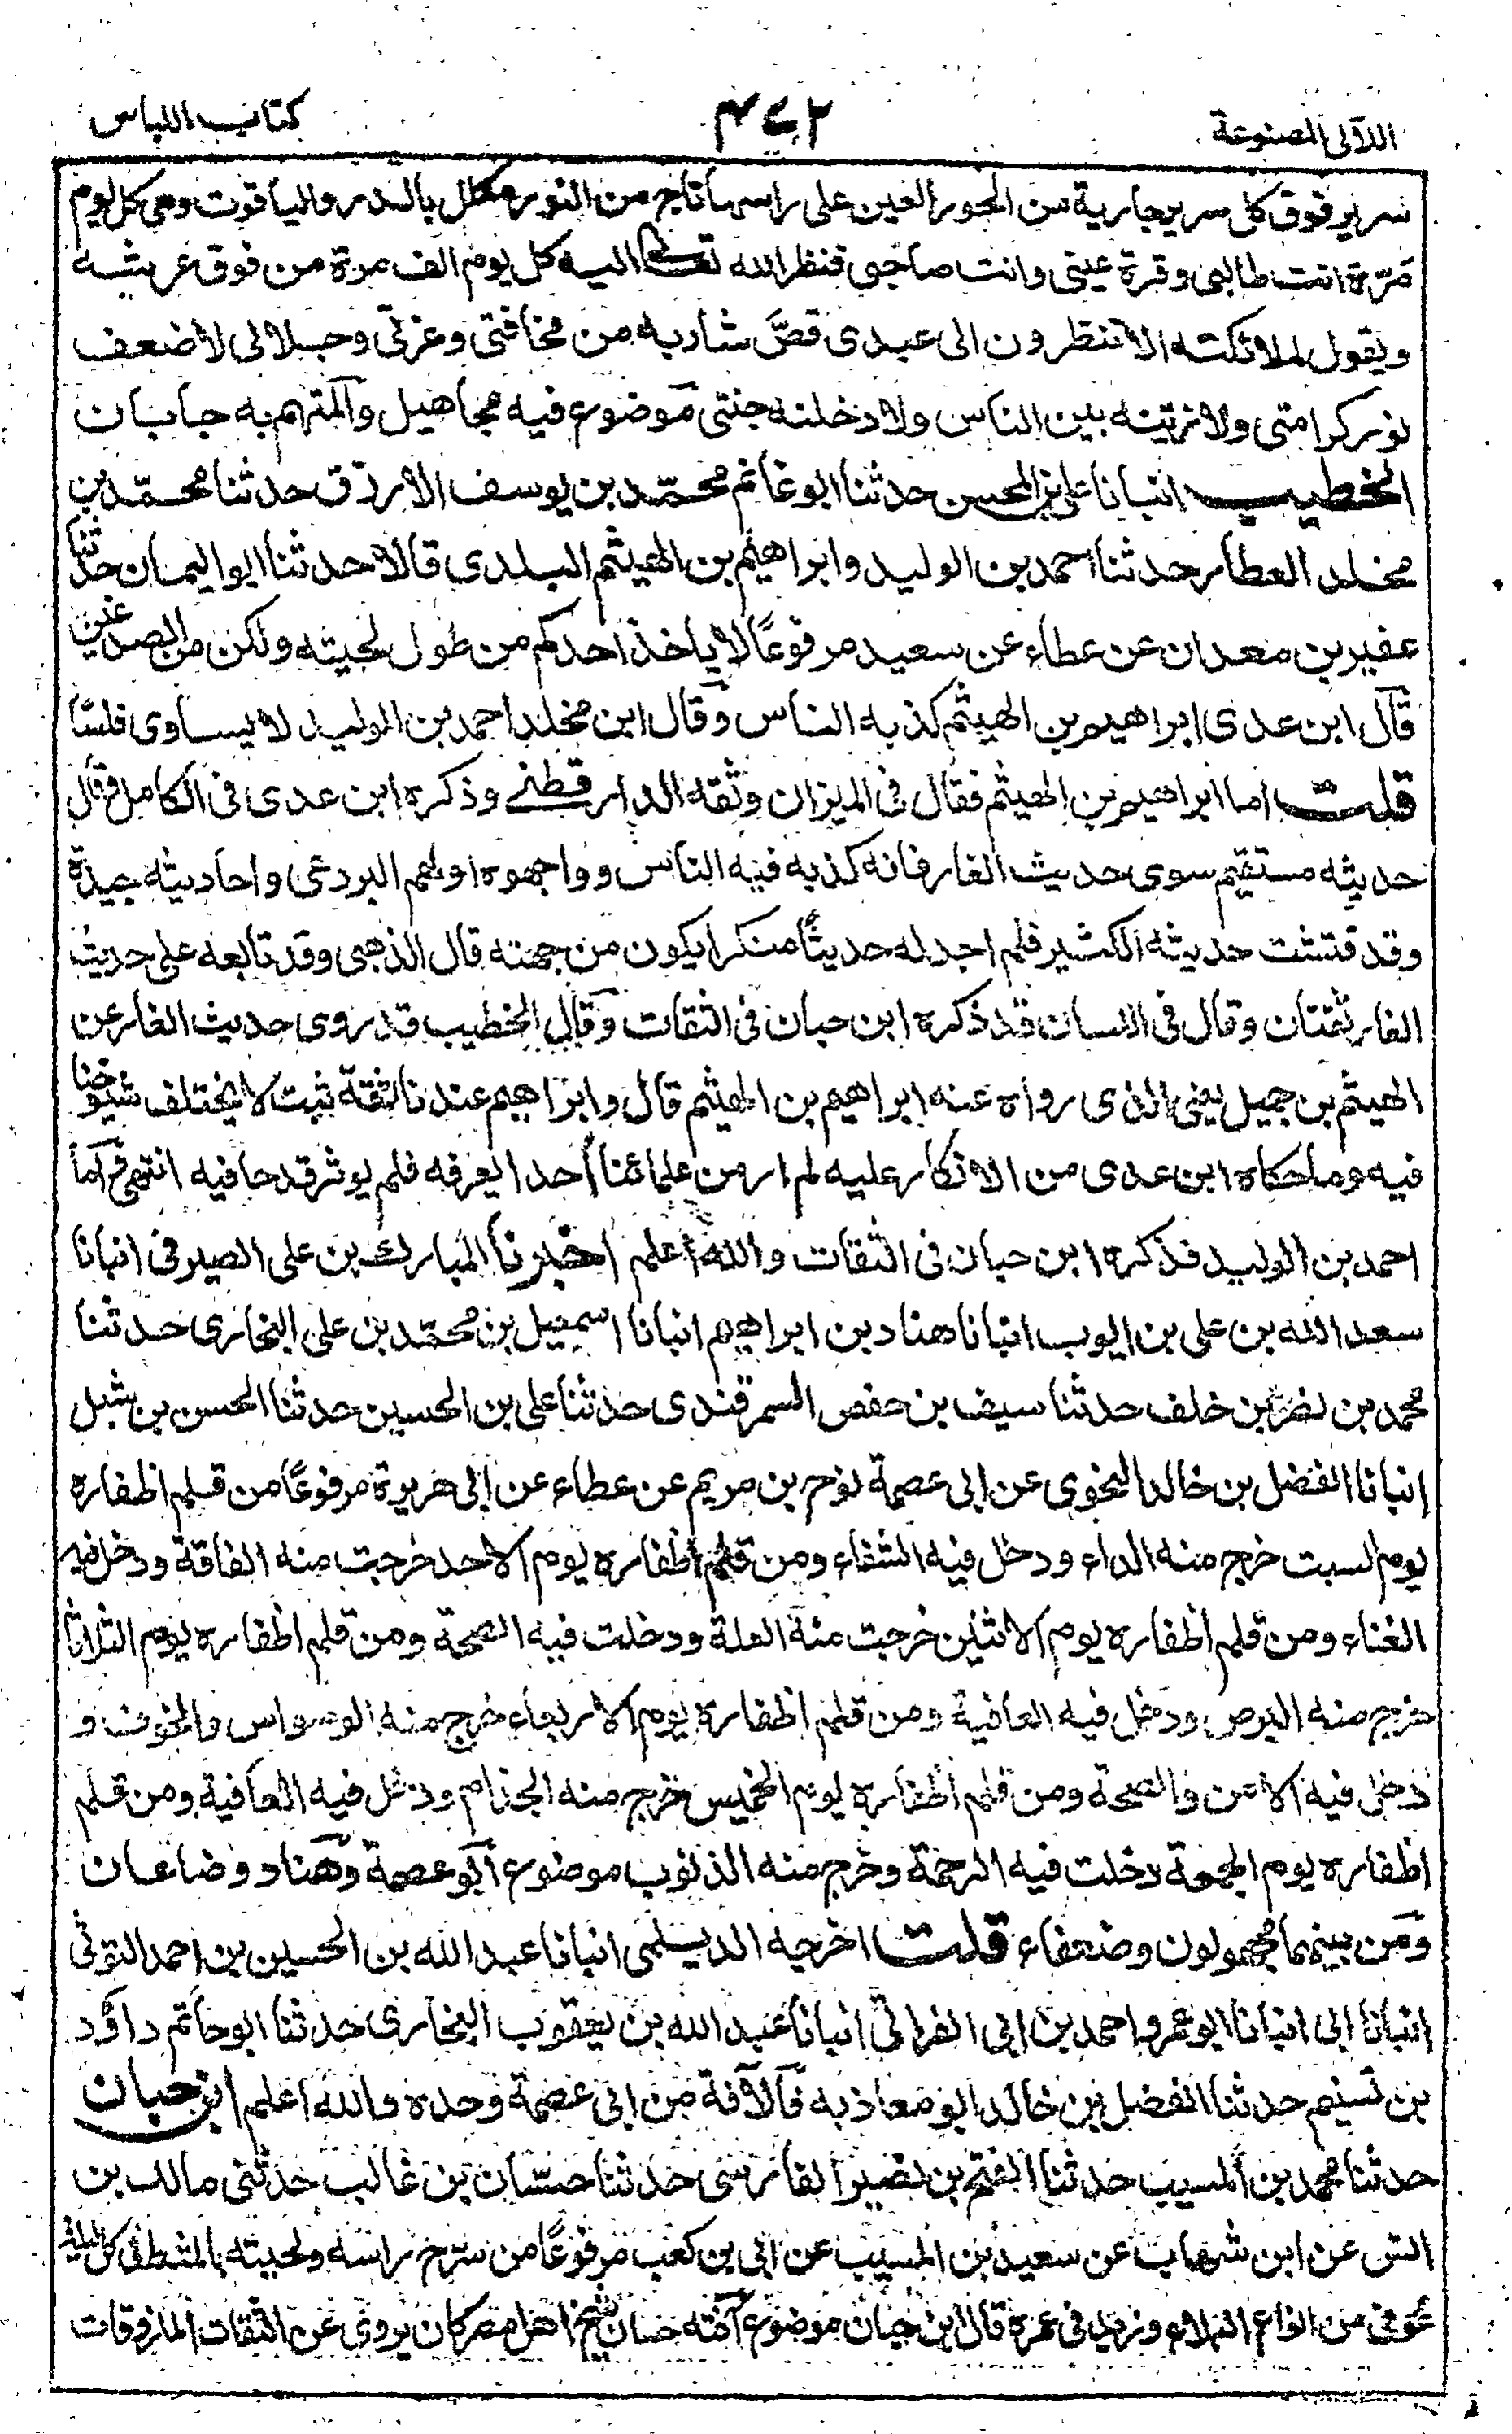 اللآلی المصنوعة
٤٧٢
کتاب اللباس
سریر فوق کل سریر جاریة من الحور العین علی راسها تاج من النور مکلل بالدر والیاقوت وهی کل یوم
مرّة انت طالبی وقرة عینی وانت صاحبی فنظر الله تعالی الیه کل یوم الف مرة من فوق عرشه
ویقول لملائکته الا تنظرون الی عبدی قصَّ شاربه من مخافتی وعزتی وجلالی لاضعف
نور کرامتی ولازیننه بین الناس ولادخلنه جنتی موضوع فیه مجاهیل والمتهم به جابان
الخطیب انبانا علی بن المحسن حدثنا ابو غانم محمّد بن یوسف الازرق حدثنا محمّد بن
مخلد العطار حدثنا احمد بن الولید وابراهیم بن الهیثم البلدی قالا حدثنا ابو الیمان حدثنا
عفیر بن معدان عن عطاء عن سعید مرفوعًا لا یاخذ احدکم من طول لحیته ولکن من الصدغین
قال ابن عدی ابراهیم بن الهیثم کذبه الناس وقال ابن مخلد احمد بن الولید لا یساوی فلسًا
قلت اما ابراهیم بن الهیثم فقال فی المیزان وثقه الدارقطنے وذکره ابن عدی فی الکامل وقال
حدیثه مستقیم سوی حدیث الغار فانه کذبه فیه الناس وواجهوه اولهم البردعی واحادیثه جیدة
وقد فتشت حدیثه الکثیر فلم اجد له حدیثًا منکرا یکون من جهته قال الذهبی وقد تابعه علی حدیث
الغار ثقتان وقال فی اللسان قد ذکره ابن حبان فی الثقات وقال الخطیب قد روی حدیث الغار عن
الهیثم بن جمیل یعنی الذی رواه عنه ابراهیم بن الهیثم قال وابراهیم عندنا ثقة ثبت لا یختلف شیوخنا
فیه وما حکاه ابن عدی من الانکار علیه لم ار من علمائنا احدا یعرفه فلم یوثر قدحا فیه انتهی واما
احمد بن الولید فذکره ابن حبان فی الثقات والله اعلم اخبرنا المبارک بن علی الصیرفی انبانا
سعد الله بن علی بن ایوب انبانا هناد بن ابراهیم انبانا اسمعیل بن محمّد بن علی البخاری حدثنا
محمد بن نصر بن خلف حدثنا سیف بن حفص السمرقندی حدثنا علی بن الحسین حدثنا الحسن بن شبل
انبانا الفضل بن خالد النحوی عن ابی عصمة نوح بن مریم عن عطاء عن ابی هریرة مرفوعًا من قلم اظفاره
یوم السبت خرج منه الداء ودخل فیه الشفاء ومن قلم اظفاره یوم الاحد خرجت منه الفاقة ودخل فیه
الغناء ومن قلم اظفاره یوم الاثنین خرجت منه العلة ودخلت فیه الصحة ومن قلم اظفاره یوم الثلاثا
خرج منه البرص ودخل فیه العافیة ومن قلم اظفاره یوم الاربعاء خرج منه الوسواس والخوف و
دخل فیه الامن والصحة ومن قلم اظفاره یوم الخمیس خرج منه الجذام ودخل فیه العافیة ومن قلم
اظفاره یوم الجمعة دخلت فیه الرحمة وخرج منه الذنوب موضوع ابو عصمة وهناد وضاعان
ومن بینهما مجهولون وضعفاء قلت اخرجه الدیلمی انبانا عبد الله بن الحسین بن احمد التوثی
انبانا ابی انبانا ابو عمرو احمد بن ابی الفراتی انبانا عبد الله بن یعقوب البخاری حدثنا ابو حاتم داؤد
بن تسنیم حدثنا الفضل بن خالد ابو معاذ به فالآفة من ابی عصمة وحده والله اعلم ابن حبان
حدثنا محمد بن المسیب حدثنا الفتح بن نصیر الفارسی حدثنا حسّان بن غالب حدثنی مالک بن
انس عن ابن شهاب عن سعید بن المسیب عن ابی بن کعب مرفوعًا من سرّح راسه ولحیته بالمشط فی کل لیلة
عوفی من انواع البلاء وزید فی عمره قال ابن حبان موضوع آفته حسان شیخ اهل مصر کان یروی عن الثقات الملزوقات